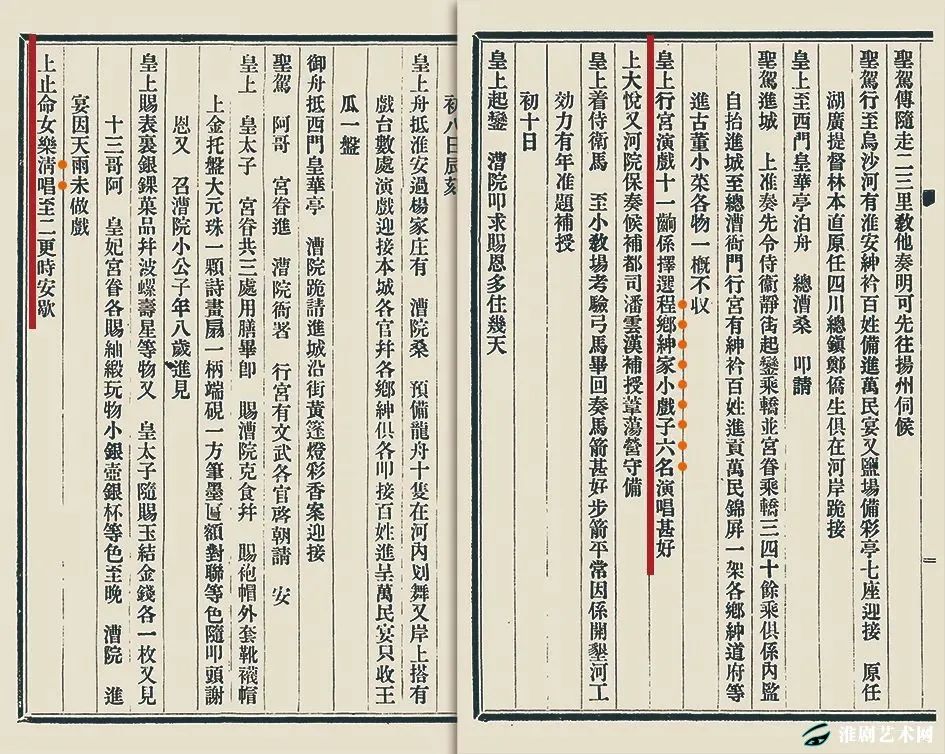 聖駕傳隨走二三里敎他奏明可先往揚州伺候
聖駕行至烏沙河有淮安紳衿百姓備進萬民宴又鹽塲備彩亭七座迎接　原任
湖廣提督林本直原任四川總鎭鄭僑生俱在河岸跪接
皇上至西門皇華亭泊舟　總漕桑　叩請
聖駕進城　上准奏先令侍衞靜街起鑾乘轎並宮眷乘轎三四十餘乘俱係內監
自抬進城至總漕衙門行宮有紳衿百姓進貢萬民錦屏一架各鄉紳道府等
進古董小菜各物一概不收
皇上行宮演戲十一齣係擇選程鄉紳家小戲子六名演唱甚好
上大悅又河院保奏候補都司潘雲漢補授葦蕩營守備
皇上着侍衞馬　至小敎場考驗弓馬畢回奏馬箭甚好步箭平常因係開墾河工
効力有年准題補授
初十日
皇上起鑾　漕院叩求賜恩多住幾天
初八日辰刻
皇上舟抵淮安過楊家庄有　漕院桑　預備龍舟十隻在河內划舞又岸上搭有
戲台數處演戲迎接本城各官幷各鄉紳俱各叩接百姓進呈萬民宴只收王
瓜一盤
御舟抵西門皇華亭　漕院跪請進城沿街黃篷燈彩香案迎接
聖駕　阿哥　宮眷進　漕院衙署　行宮有文武各官啓朝請　安
皇上　皇太子　宮眷共三處用膳畢卽　賜漕院克食幷　賜袍帽外套靴襪帽
上金托盤大元珠一顆詩畫扇一柄端硯一方筆墨匾額對聯等色隨叩頭謝
恩又　召漕院小公子年八歲進見
皇上賜表裏銀錁菓品幷波螺壽星等物又　皇太子隨賜玉結金錢各一枚又見
十三哥阿　皇妃宮眷各賜紬緞玩物小銀壺銀杯等色至晚　漕院　進
宴因天雨未做戲
上止命女樂淸唱至二更時安歇
淮剧艺术网